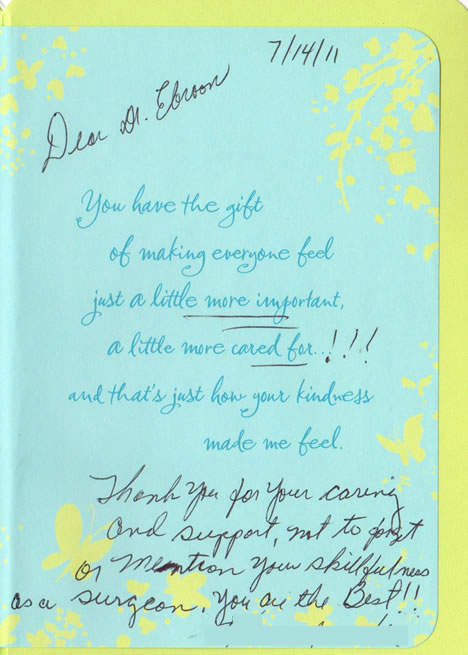 7/14/11
Dear Dr. Ebroon
You have the gift
of making everyone feel
just a little more important,
a little more cared for...!!!
and that's just how your kindness
made me feel.
Thank You for Your caring
and support, not to forget
or Mention Your skillfulness
as a surgeon. You are the Best!!